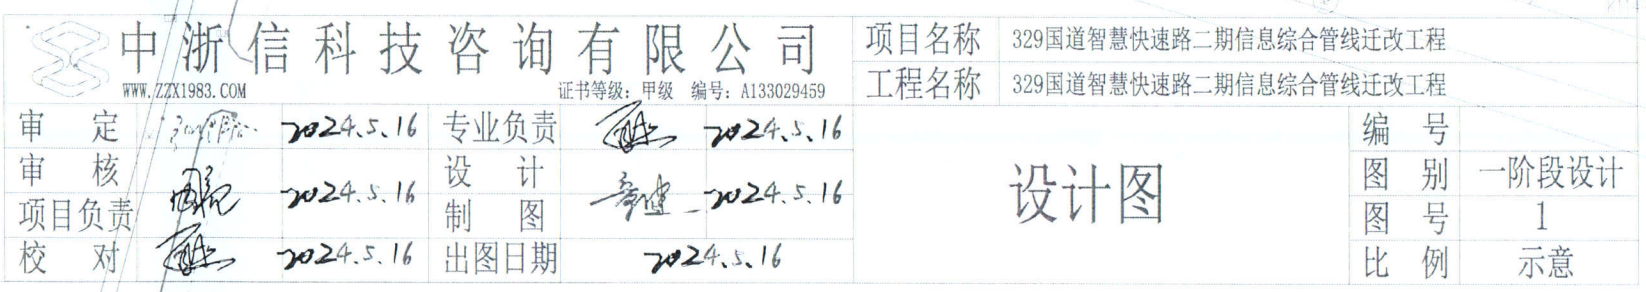 中浙信科技咨询有限公司
WWW.ZZX1983.COM 证书等级：甲级 编号：A133029459
项目名称 329国道智慧快速路二期信息综合管线迁改工程
工程名称 329国道智慧快速路二期信息综合管线迁改工程
审定 2024.5.16 专业负责 2024.5.16
审核 设计
项目负责 2024.5.16 制图 2024.5.16
校对 2024.5.16 出图日期 2024.5.16
设计图
编号
图别 一阶段设计
图号 1
比例 示意